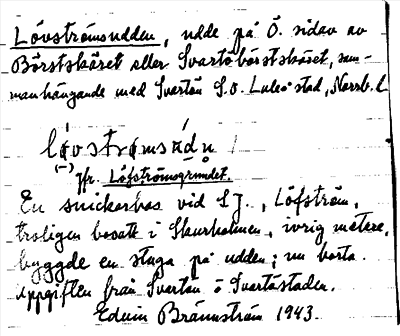 Lövströmsudden, udde på Ö. sidan av
Börstskäret eller Svartöbörstskäret, sam-
manhängande med Svartön S.O. Luleå stad, Norrb. l.
lǫvstrǫmsùdn
(-) Jfr. Löfströmsgrundet.
En snickerbas vid S.J., Löfström,
troligen bosatt i Skurholmen, ivrig metare,
byggde en stuga på udden; nu borta.
Uppgiften från Svartön o Svartöstaden.
Edvin Brännström 1943.